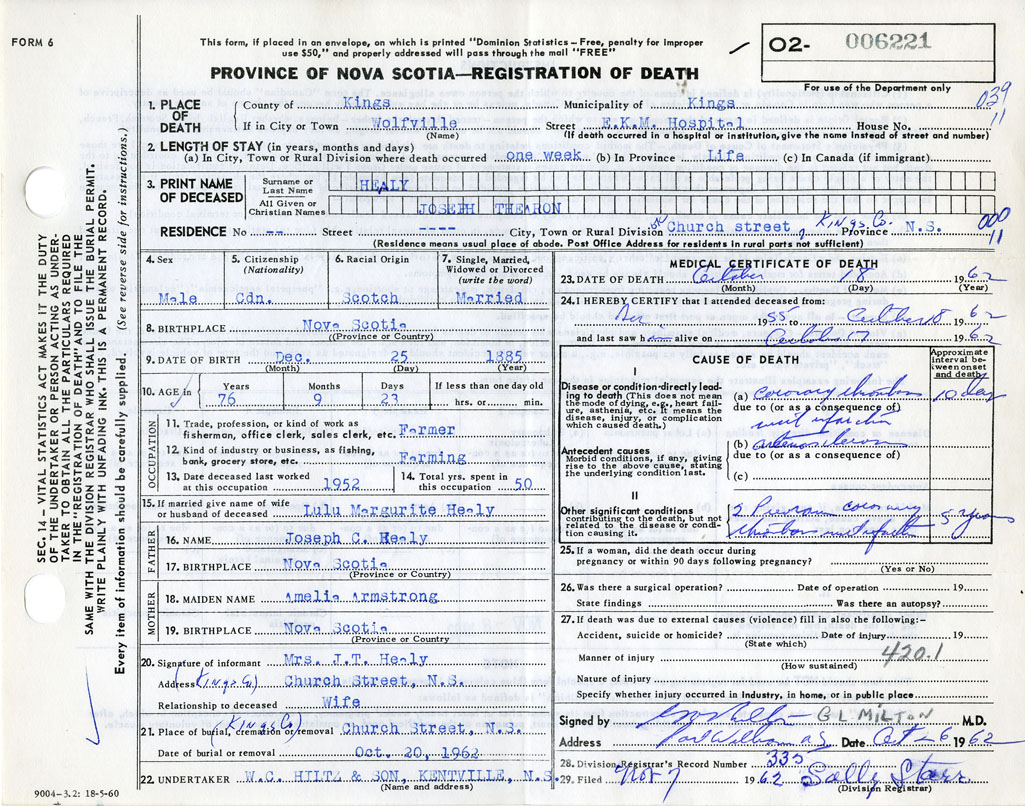 FORM 6
This form, if placed in an envelope, on which is printed "Dominion Statistics – Free, penalty for improper
use $50," and properly addressed will pass through the mail "FREE"
O2- 006221
PROVINCE OF NOVA SCOTIA—REGISTRATION OF DEATH
For use of the Department only
039
11
1. PLACE OF DEATH
County of Kings Municipality of Kings
If in City or Town Wolfville Street E.K.M. Hospital House No.
(Name) (If death occurred in a hospital or institution, give the name instead of street and number)
2. LENGTH OF STAY (in years, months and days)
(a) In City, Town or Rural Division where death occurred one week (b) In Province Life (c) In Canada (if immigrant)
3. PRINT NAME OF DECEASED
Surname or Last Name HEALY
All Given or Christian Names JOSEPH THEARON
RESIDENCE No -- Street ---- City, Town or Rural Division Church street, Kings Co. Province N.S.
000
11
(Residence means usual place of abode. Post Office Address for residents in rural parts not sufficient)
4. Sex Male
5. Citizenship (Nationality) Cdn.
6. Racial Origin Scotch
7. Single, Married, Widowed or Divorced (write the word) Married
8. BIRTHPLACE Nova Scotia
(Province or Country)
9. DATE OF BIRTH Dec. 25 1885
(Month) (Day) (Year)
10. AGE in Years 76 Months 9 Days 23 If less than one day old hrs. or min.
OCCUPATION
11. Trade, profession, or kind of work as
fisherman, office clerk, sales clerk, etc. Farmer
12. Kind of industry or business, as fishing,
bank, grocery store, etc. Farming
13. Date deceased last worked at this occupation 1952
14. Total yrs. spent in this occupation 50
15. If married give name of wife or husband of deceased Lulu Margurite Healy
FATHER
16. NAME Joseph C. Healy
17. BIRTHPLACE Nova Scotia
(Province or Country)
MOTHER
18. MAIDEN NAME Amelia Armstrong
19. BIRTHPLACE Nova Scotia
(Province or Country
20. Signature of informant Mrs. J.T. Healy
Address (Kings Co) Church Street, N.S.
Relationship to deceased Wife
21. Place of burial, cremation or removal (Kings Co) Church Street, N.S.
Date of burial or removal Oct. 20, 1962
22. UNDERTAKER W.C. HILTZ & SON, KENTVILLE, N.S.
(Name and address)
MEDICAL CERTIFICATE OF DEATH
23. DATE OF DEATH October 18 1962
(Month) (Day) (Year)
24. I HEREBY CERTIFY that I attended deceased from:
1955 to October 18 1962
and last saw h alive on October 17 1962
CAUSE OF DEATH
Approximate interval between onset and death
I
Disease or condition directly leading to death (This does not mean
the mode of dying, e.g., heart failure, asthenia, etc. It means the
disease, injury, or complication which caused death.)
(a) coronary thrombosis 10 days
due to (or as a consequence of)
Antecedent causes
Morbid conditions, if any, giving rise to the above cause, stating
the underlying condition last.
(b)
due to (or as a consequence of)
(c)
II
Other significant conditions
contributing to the death, but not related to the disease or condition causing it.
2 Previous coronary 5 years
25. If a woman, did the death occur during
pregnancy or within 90 days following pregnancy?
(Yes or No)
26. Was there a surgical operation? Date of operation 19
State findings Was there an autopsy?
27. If death was due to external causes (violence) fill in also the following:–
Accident, suicide or homicide? Date of injury 19
(State which)
420.1
Manner of injury
(How sustained)
Nature of injury
Specify whether injury occurred in industry, in home, or in public place
Signed by G L MILTON M.D.
Address Port Williams N.S. Date Oct 26 1962
28. Division Registrar's Record Number 335
29. Filed Nov 7 1962 Sally Starr
(Division Registrar)
SEC. 14 – VITAL STATISTICS ACT MAKES IT THE DUTY
OF THE UNDERTAKER OR PERSON ACTING AS UNDERTAKER
TO OBTAIN ALL THE PARTICULARS REQUIRED
IN THE "REGISTRATION OF DEATH" AND TO FILE THE
SAME WITH THE DIVISION REGISTRAR WHO SHALL ISSUE THE BURIAL PERMIT.
WRITE PLAINLY WITH UNFADING INK. THIS IS A PERMANENT RECORD.
Every item of information should be carefully supplied. (See reverse side for instructions.)
9004-3.2: 18-5-60